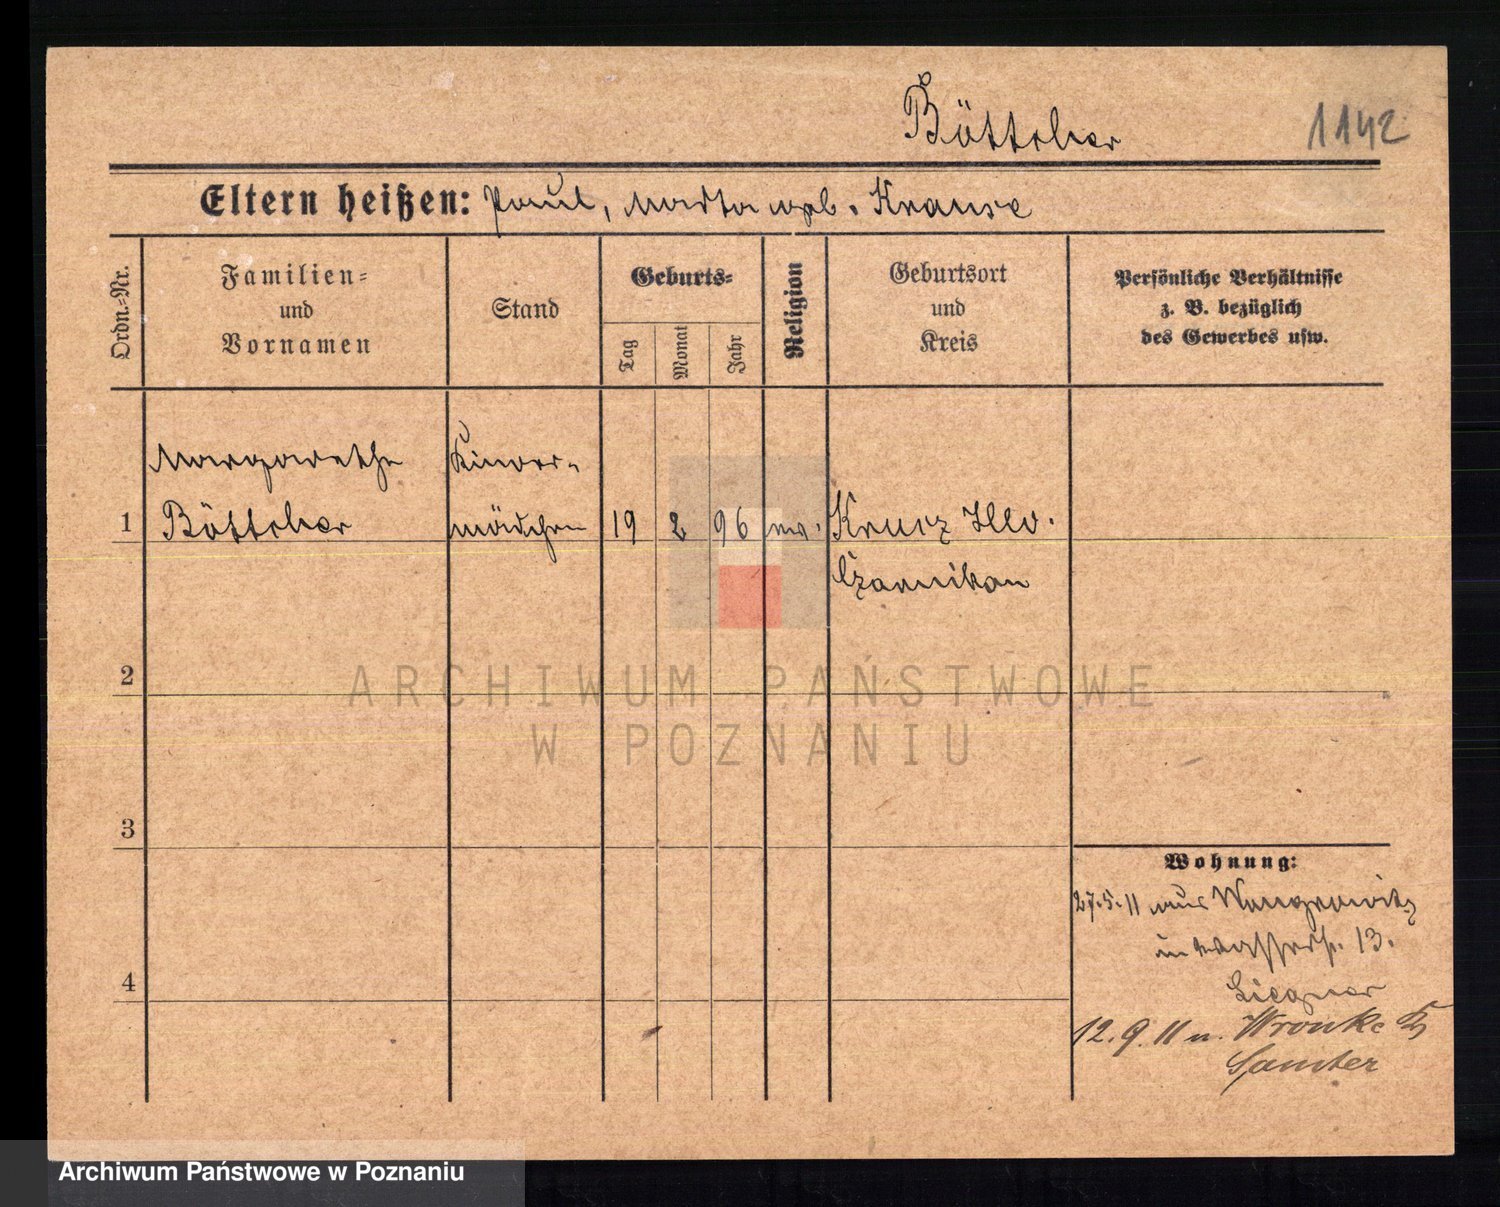 Böttcher
1142
Eltern heißen: Paul, Martha geb. Krause
Ordn.-Nr.
Familien-
und
Vornamen
Stand
Geburts-
Tag
Monat
Jahr
Religion
Geburtsort
und
Kreis
Persönliche Verhältnisse
z. B. bezüglich
des Gewerbes usw.
Margarethe Kinder-
1 Böttcher mädchen 19 2 96 ev. Kreuz
Czarnikau
2
ARCHIWUM PAŃSTWOWE
W POZNANIU
3
Wohnung:
27.5.11 aus Wongrowitz
in Wasserstr. 13.
4
12.9.11 n. Wronke
Samter
Archiwum Państwowe w Poznaniu